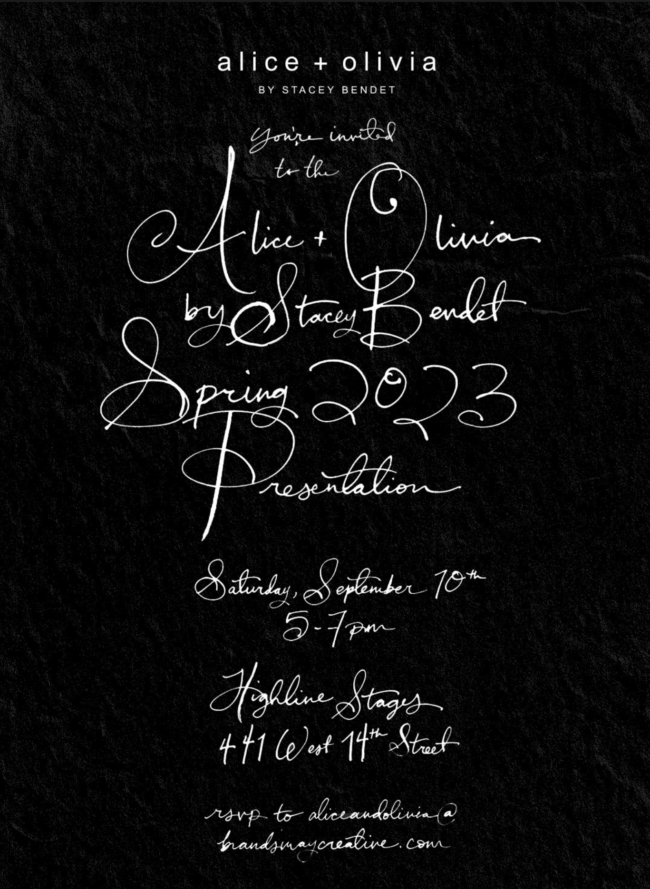 alice + olivia
BY STACEY BENDET
You're invited
to the
Alice + Olivia
by Stacey Bendet
Spring 2023
Presentation
Saturday, September 10th
5-7pm
Highline Stages
441 West 14th Street
rsvp to aliceandolivia@
brandsmaycreative.com